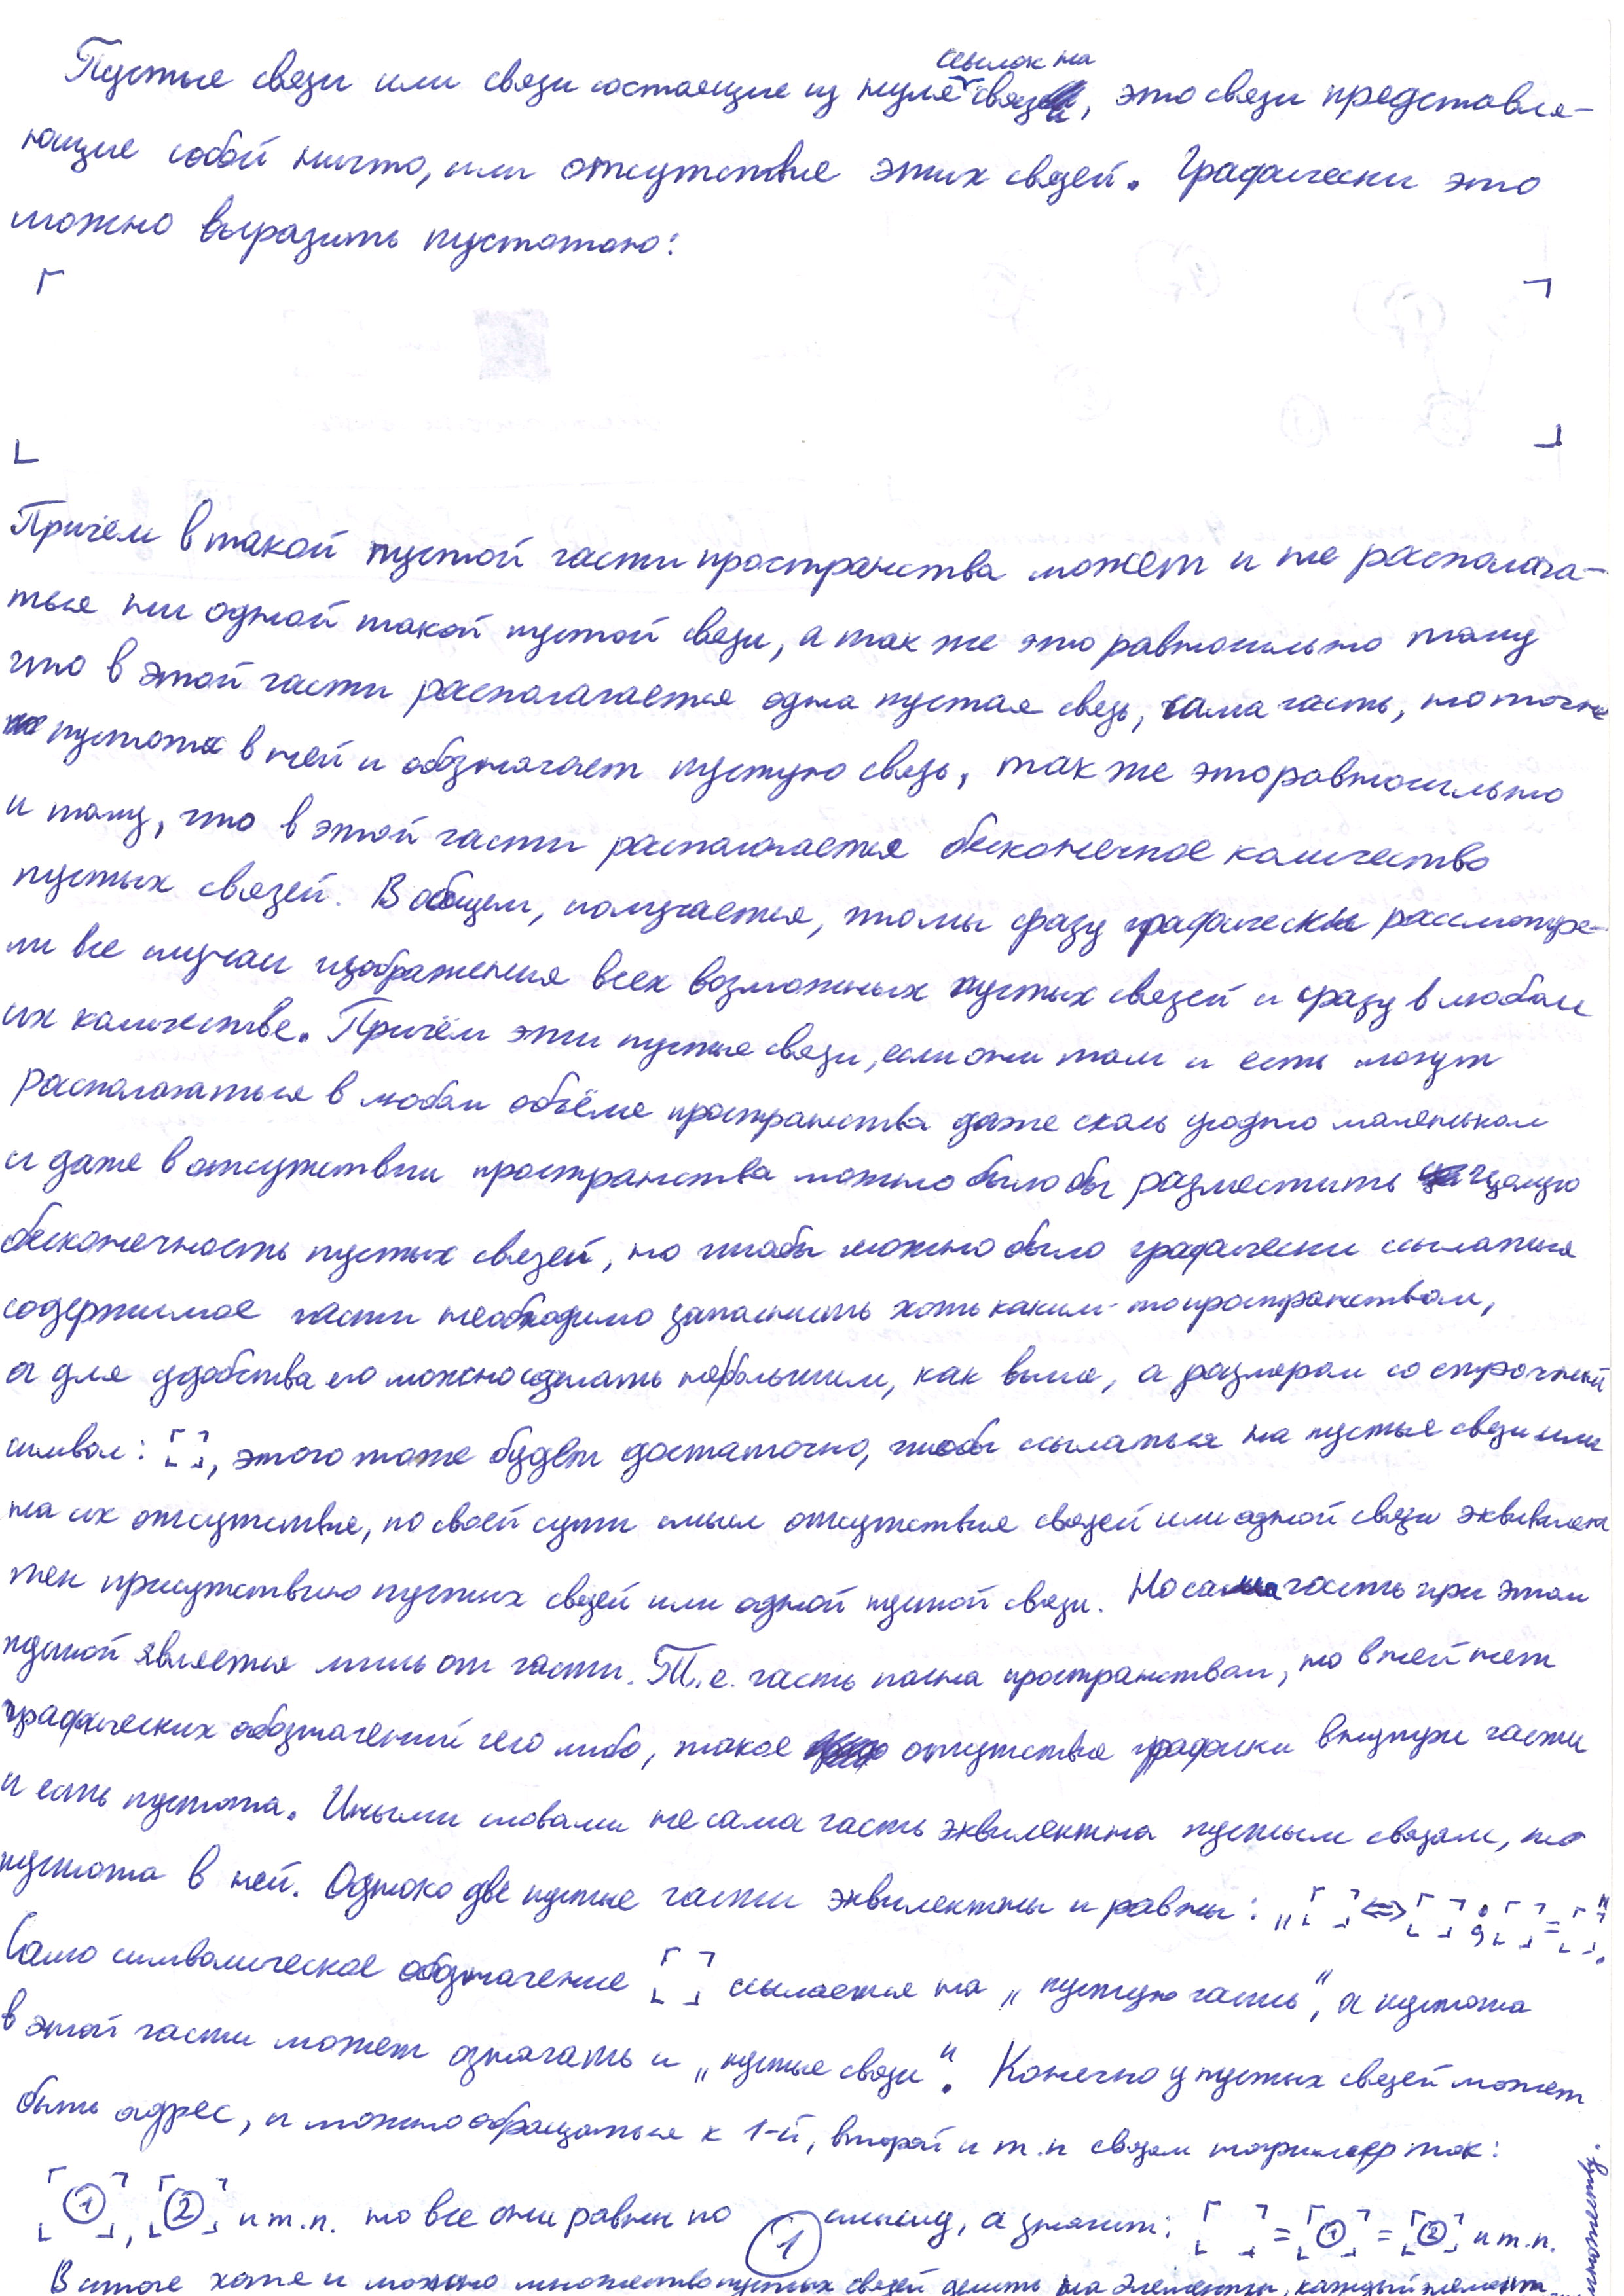 Пустые связи или связи состоящие из нуля ссылок на связи, это связи представля-
ющие собой ничто, или отсутствие этих связей. Графически это
можно выразить пустотою:
Причём в такой пустой части пространства может и не располага-
ться ни одной такой пустой связи, а так же это равносильно тому
что в этой части располагается одна пустая связь, сама часть, но точнее
пустота в ней и обозначает пустую связь, так же это равносильно
и тому, что в этой части располагается бесконечное количество
пустых связей. В общем, получается, что мы сразу графически рассмотре-
ли все случаи изображения всех возможных пустых связей и сразу в любом
их количестве. Причём эти пустые связи, если они там и есть могут
располагаться в любом объёме пространства даже сколь угодно маленьком
и даже в отсутствии пространства можно было бы разместить целую
бесконечность пустых связей, но чтобы можно было графически ссылаться
содержимое части необходимо заполнить хоть каким-то пространством,
а для удобства его можно сделать небольшим, как выше, а размером со строчный
символ: ⌜ ⌝⌞ ⌟, этого тоже будет достаточно, чтобы ссылаться на пустые связи или
на их отсутствие, по своей сути смысл отсутствия связей или одной связи эквивален
тен присутствию пустых связей или одной пустой связи. Но сама часть при этом
пустой является лишь от части. Т.е. часть полна пространством, но в ней нет
графических обозначений чего либо, такое отсутствие графики внутри части
и есть пустота. Иными словами не сама часть эквилентна пустым связям, но
пустота в ней. Однако две пустые части эквилентны и равны: „⌜ ⌝⌞ ⌟ <=> ⌜ ⌝⌞ ⌟; ⌜ ⌝⌞ ⌟ = ⌜ ⌝⌞ ⌟".
Само символическое обозначение ⌜ ⌝⌞ ⌟ ссылается на „пустую часть", а пустота
в этой части может означать и „пустые связи". Конечно у пустых связей может
быть адрес, и можно обращаться к 1-й, второй и т.п связям например так:
⌜①⌝⌞ ⌟, ⌜②⌝⌞ ⌟ и т.п. но все они равны по смыслу, а значит: ⌜ ⌝⌞ ⌟ = ⌜①⌝⌞ ⌟ = ⌜②⌝⌞ ⌟ и т.п.
①
В итоге хотя и можно множество пустых связей делить на элементы, каждый элемент
множеству.